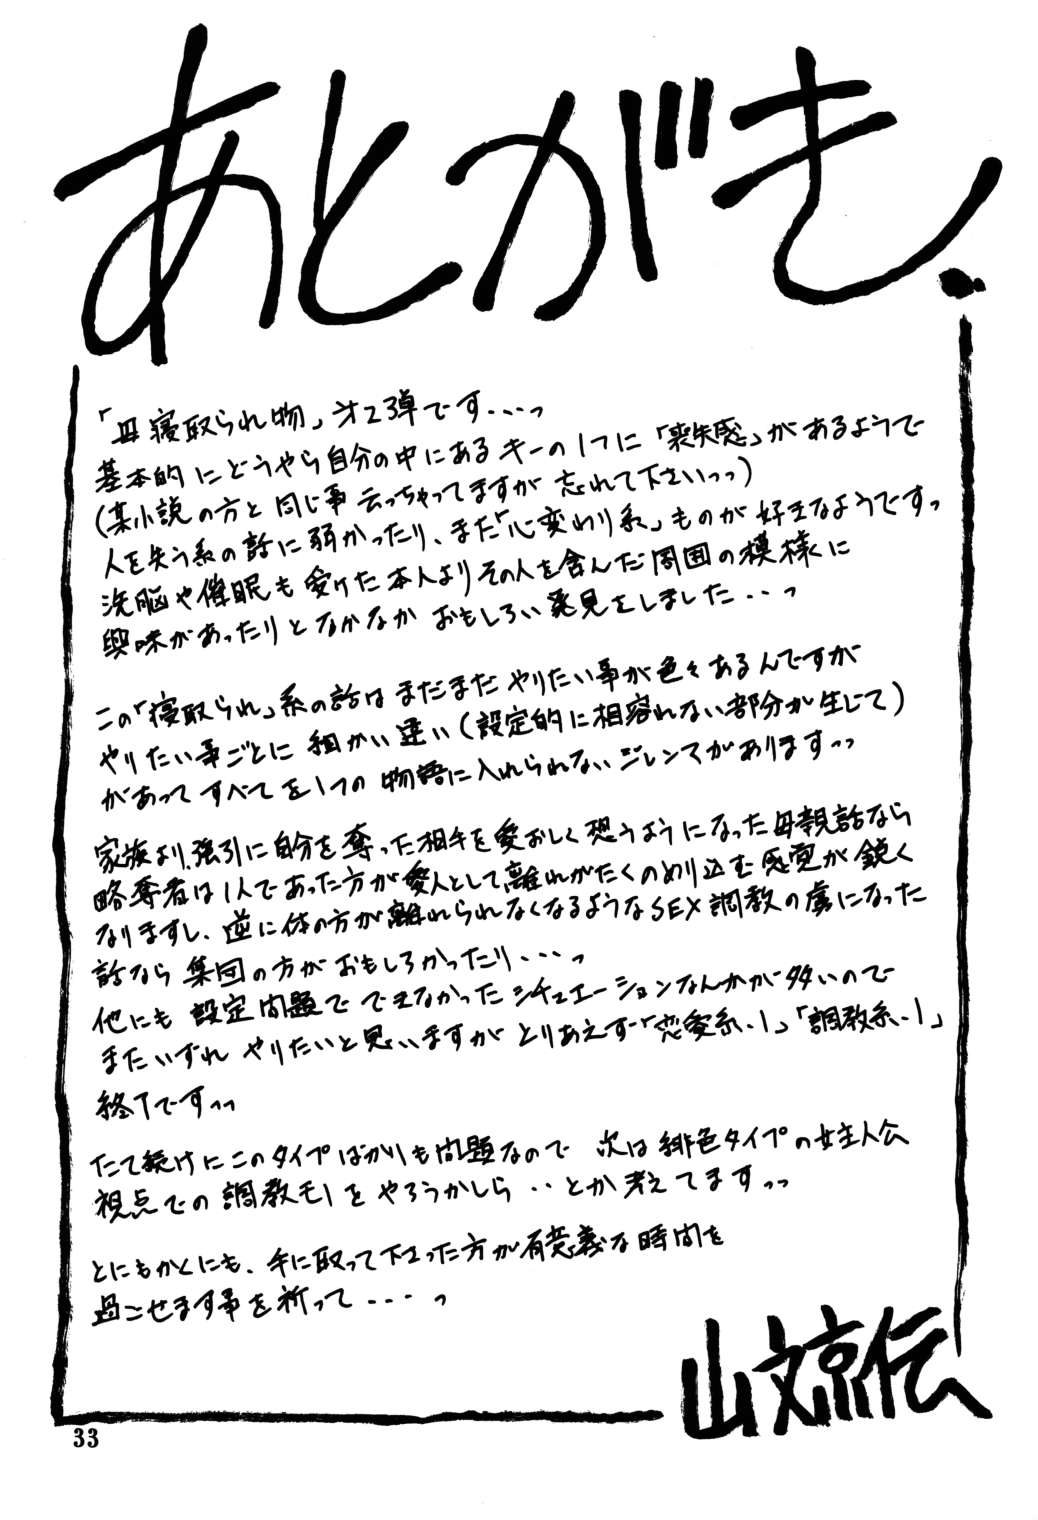 あとがき.
「母寝取られ物」才2弾です...っ
基本的にどうやら自分の中にあるキーの1つに「喪失感」があるようで
(某小説の方と同じ事云っちゃってますが忘れて下さいっっ)
人を失う系の話に弱かったり、また「心変わり系」ものが好きなようですっ
洗脳や催眠も受けた本人よりその人を含んだ周囲の模様に
興味があったりとなかなかおもしろい発見をしました...っ
この「寝取られ」系の話はまだまだやりたい事が色々あるんですが
やりたい事ごとに細かい違い(設定的に相容れない部分が生じて)
があってすべてを1つの物語に入れられないジレンマがありますっっ
家族より、強引に自分を奪った相手を愛おしく想うようになった母親話なら
略奪者は1人であった方が愛人として離れがたくのめり込む感覚が鋭く
なりますし、逆に体の方が離れられなくなるようなSEX調教の虜になった
話なら集団の方がおもしろかったり...っ
他にも設定問題でできなかったシチュエーションなんかが多いので
またいずれやりたいと思いますがとりあえず「恋愛系.1」「調教系.1」
終了ですっっ
たて続けにこのタイプばかりも問題なので 次は緋色タイプの女主人公
視点での調教モノをやろうかしら..とか考えてますっっ
とにもかくにも、手に取って下さった方が有意義な時間を
過ごせます事を祈って...っ
山文京伝
33